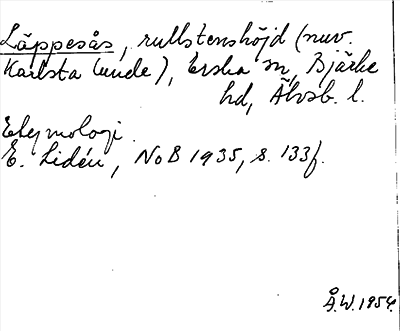 Läppesås, rullstenshöjd (nuv.
Karlsta lunde), Erska sn, Bjärke
hd, Älvsb. l.
Etymologi.
E. Lidén, NoB 1935, s. 133f.
Å.W. 1954.